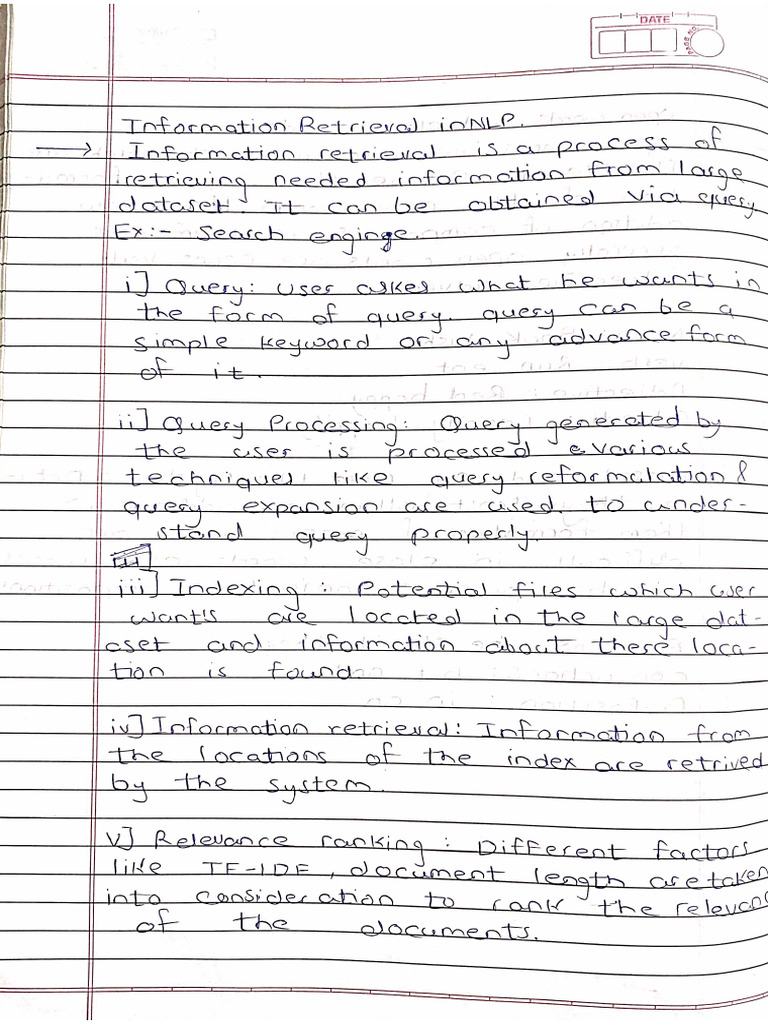 DATE
PAGE NO.
Information Retrieval in NLP.
→ Information retrieval is a process of
retrieving needed information from large
dataset. It can be obtained via query
Ex:- Search enginge.
i] Query: User askes what he wants in
the form of query. query can be a
simple keyword or any advance form
of it.
ii] Query Processing: Query generated by
the user is processed & various
techniques like query reformulation &
query expansion are used. to under-
stand query properly.
iii] Indexing : Potential files which user
want's are located in the large dat-
aset and information about these loca-
tion is found.
iv] Information retrieval: Information from
the locations of the index are retrived
by the system.
v] Relevance ranking : Different factors
like TF-IDF, document length are taken
into consideration to rank the relevanc
of the documents.